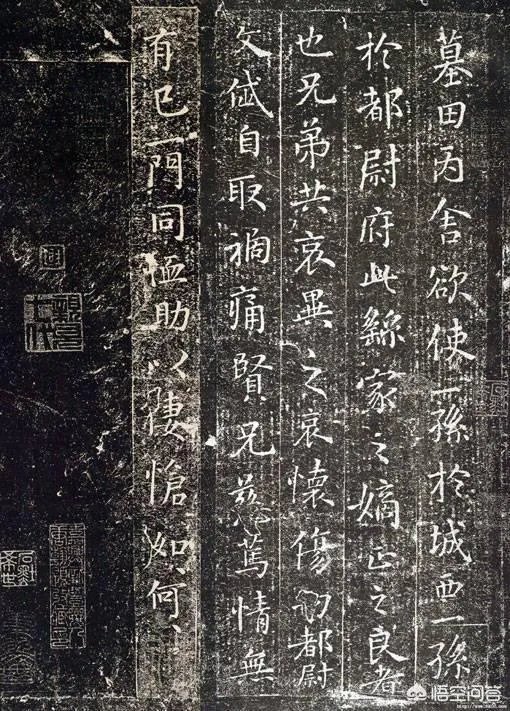 墓田丙舍欲使一孫於城西一孫
於都尉府此繇家之嫡正之良者
也兄弟共哀異之哀懷傷切都尉
文岱自取禍痛賢兄慈篤情無
有已一門同恤助以悽愴如何
悟空问答